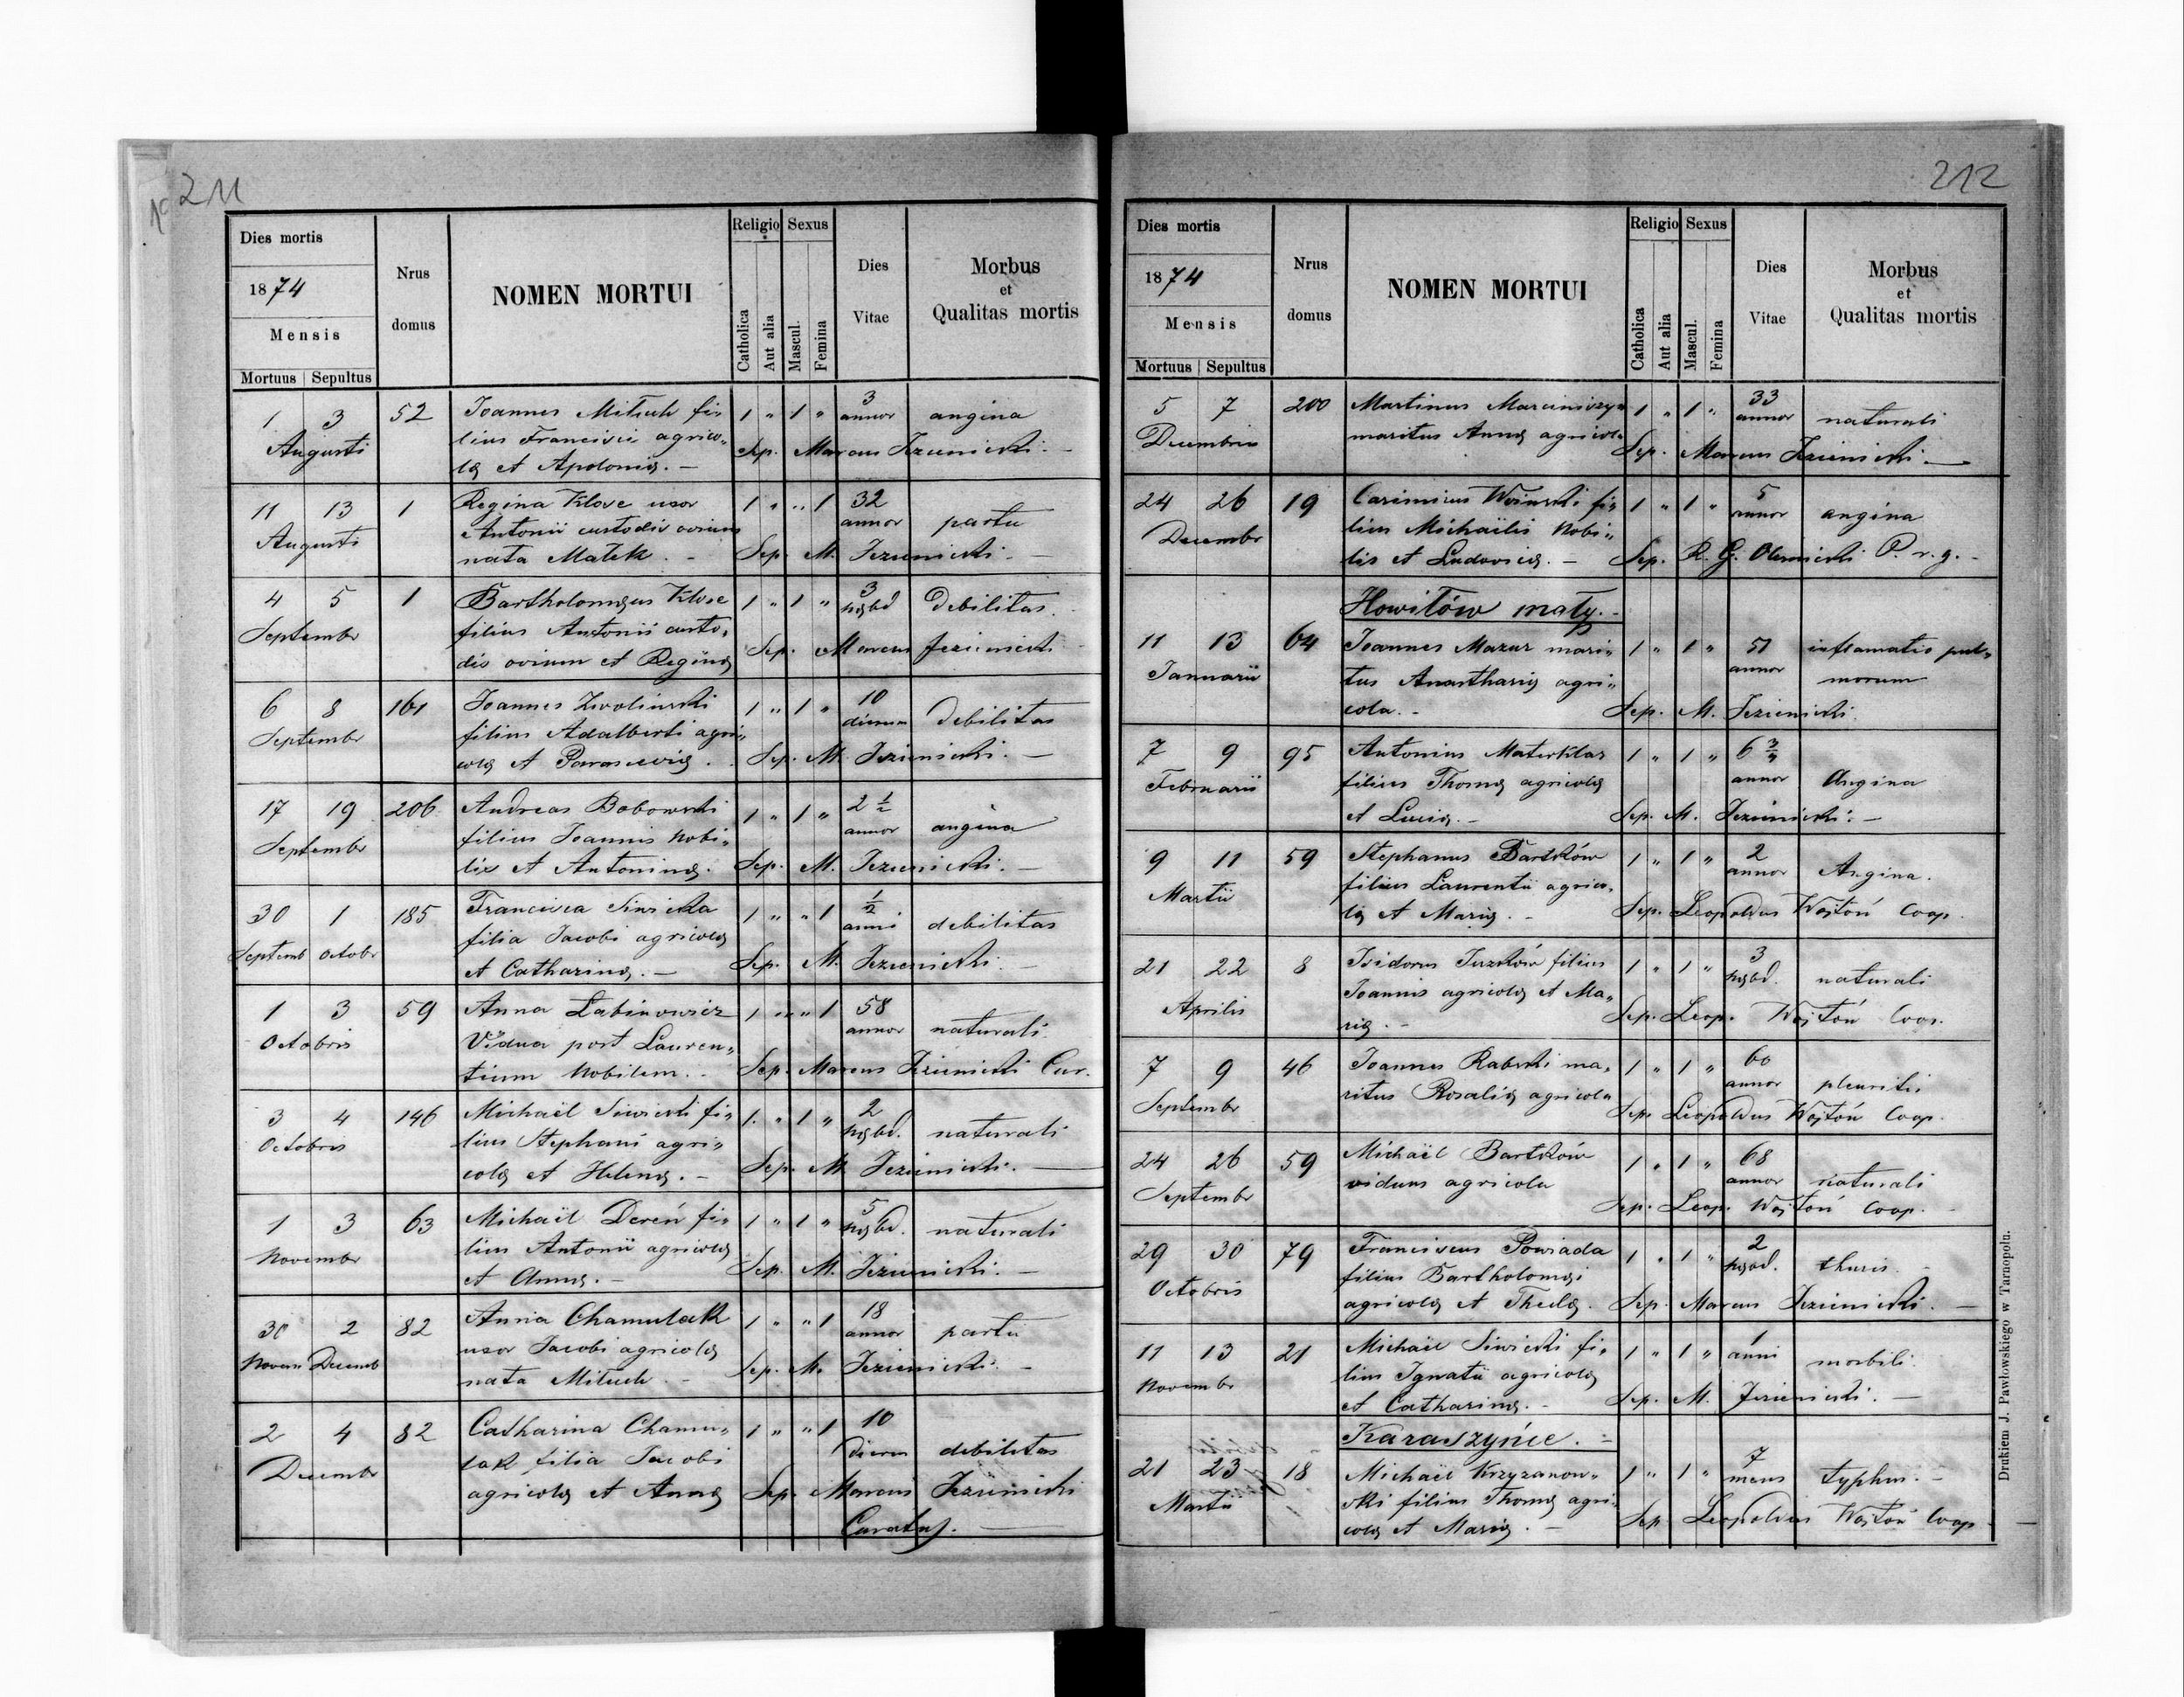 211
Dies mortis
1874
Mensis
Mortuus Sepultus
Nrus
domus
NOMEN MORTUI
Religio
Catholica
Aut alia
Sexus
Mascul.
Femina
Dies
Vitae
Morbus
et
Qualitas mortis
1 3 52 Joannes Mituch fi„ 1 „ 1 „ 3
Augusti lius Francisci agrico„ annor angina
læ et Apoloniæ. — Sep. Marcus Jezienicki. —
11 13 1 Regina Klose uxor 1 „ „ 1 32
Augusti Antonii custodis ovium annor partu
nata Matek. — Sep. M. Jezienicki. —
4 5 1 Bartholomæus Klose 1 „ 1 „ 3
Septembr filius Antonii custo„ hæbd debilitas.
dis ovium et Reginæ Sep. Marcus Jezienicki
6 8 161 Joannes Zwolinski 1 „ 1 „ 10
Septembr filius Adalberti agri„ dierum debilitas
colæ et Parasceviæ. Sep. M. Jezienicki. —
17 19 206 Andreas Bobowski 1 „ 1 „ 2 1/2
Septembr filius Joannis Nobi„ annor angina
lis et Antoninæ. Sep. M. Jezienicki. —
30 1 185 Francisca Siwicka 1 „ „ 1 1/2
Septemb Octobr filia Jacobi agricolæ anni debilitas
et Catharinæ. — Sep. M. Jezienicki. —
1 3 59 Anna Labinowicz 1 „ „ 1 58
Octobris Vidua post Lauren„ annor naturali
tium Nobilem. — Sep. Marcus Jezienicki Cur.
3 4 146 Michaël Siwicki fi„ 1. „ 1 „ 2
Octobris lius Stephani agri„ hæbd. naturali
colæ et Helenæ. — Sep. M. Jezienicki. —
1 3 63 Michaël Dereń fi„ 1 „ 1 „ 5
Novembr lius Antonii agricolæ hæbd. naturali
et Annæ. — Sep. M. Jezienicki. —
30 2 82 Anna Chamulak 1 „ „ 1 18
Novem Decemb uxor Jacobi agricolæ annor partu
nata Mituch. — Sep. M. Jezienicki. —
2 4 82 Catharina Chamu„ 1 „ „ 1 10
Decembr lak filia Jacobi dierum debilitas
agricolæ et Annæ Sep. Marcus Jezienicki
Curatus. —
212
Dies mortis
1874
Mensis
Mortuus Sepultus
Nrus
domus
NOMEN MORTUI
Religio
Catholica
Aut alia
Sexus
Mascul.
Femina
Dies
Vitae
Morbus
et
Qualitas mortis
5 7 200 Martinus Marciniszyn 1 „ 1 „ 33
Decembris maritus Annæ agricola annor naturali
Sep. Marcus Jezienicki —
24 26 19 Casimirus Woinski fi„ 1 „ 1 „ 5
Decembr lius Michaëlis Nobi„ annor angina
lis et Ludovicæ. — Sep. R. G. P. r. g. —
Howiłów mały. —
11 13 64 Joannes Mazur mari„ 1 „ 1 „ 51 inflamatio pul„
Januarii tus Anasthasiæ agri„ annor monum
cola. — Sep. M. Jezienicki.
7 9 95 Antonius Materklas 1 „ 1 „ 6 3/4
Februarii filius Thomæ agricolæ annor Angina
et Luciæ. — Sep. M. Jezienicki. —
9 11 59 Stephanus Bartków 1 „ 1 „ 2
Martii filius Laurentii agrico„ annor Angina.
læ et Mariæ. — Sep. Leopoldus Wojtoń Coop.
21 22 8 Isidorus Juzków filius 1 „ 1 „ 3
Aprilis Joannis agricolæ et Ma„ hæbd. naturali
riæ. — Sep. Leop. Wojtoń Coop.
7 9 46 Joannes Rabski ma„ 1 „ 1 „ 60
Septembr ritus Rosaliæ agricola annor pleuritis
Sep. Leopoldus Wojtoń Coop.
24 26 59 Michaël Bartków 1 „ 1 „ 68
Septembr viduus agricola annor naturali
Sep. Leop. Wojtoń Coop.
29 30 79 Franciscus Powiada 1 „ 1 „ 2
Octobris filius Bartholomæi hæbd. thusis. —
agricolæ et Theclæ. Sep. Marcus Jezienicki. —
11 13 21 Michaël Siwicki fi„ 1 „ 1 „ 1
Novembr lius Ignatii agricolæ anni morbili
et Catharinæ. — Sep. M. Jezienicki. —
Karaszyńce. —
21 23 18 Michaël Krzyzanow„ 1 „ 1 „ 7
Martii ski filius Thomæ agri„ mens typhus. —
colæ et Mariæ. — Sep Leopoldus Wojtoń Coop —
Drukiem J. Pawłowskiego w Tarnopolu.